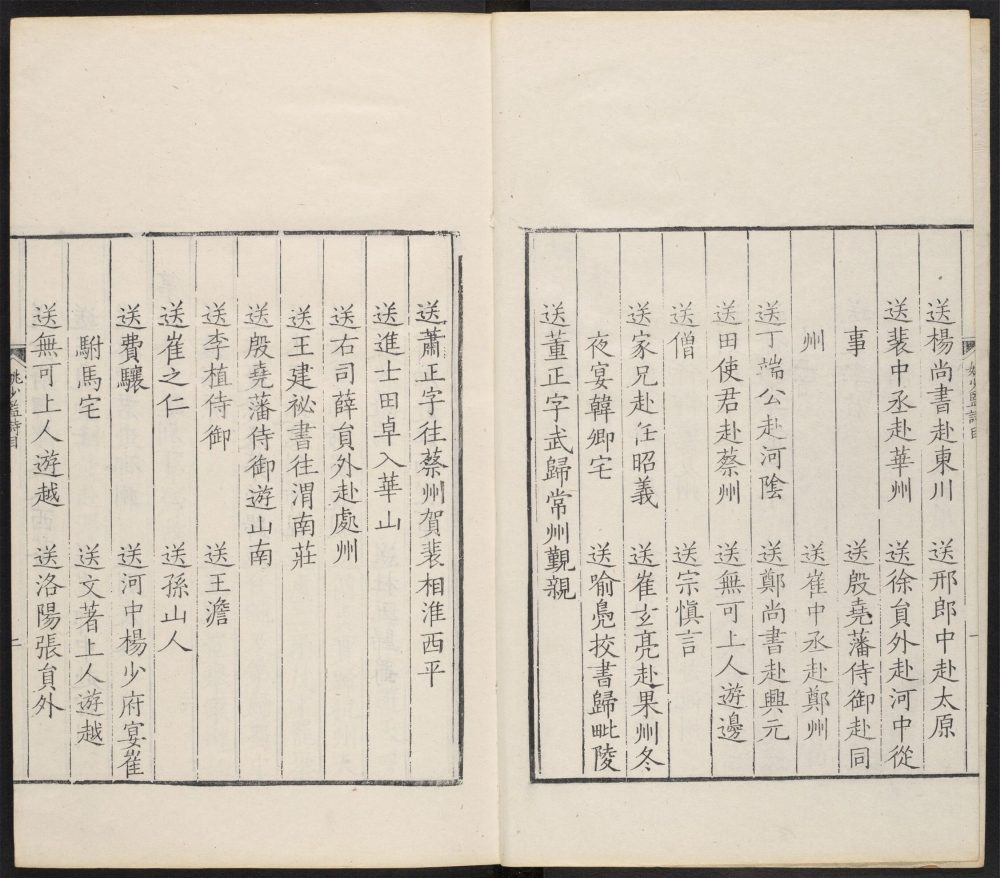 姚少監詩目
一
送楊尚書赴東川　送邢郎中赴太原
送裴中丞赴華州　送徐貟外赴河中從
事　送殷堯藩侍御赴同
州　送崔中丞赴鄭州
送丁端公赴河陰　送鄭尚書赴興元
送田使君赴蔡州　送無可上人遊邊
送僧　送宗愼言
送家兄赴任昭義　送崔玄亮赴果州冬
夜宴韓卿宅　送喻鳧挍書歸毗陵
送董正字武歸常州覲親
送蕭正字往蔡州賀裴相淮西平
送進士田卓入華山
送右司薛貟外赴處州
送王建祕書往渭南莊
送殷堯藩侍御遊山南
送李植侍御　送王澹
送崔之仁　送孫山人
送費驤　送河中楊少府宴崔
駙馬宅　送文著上人遊越
送無可上人遊越　送洛陽張貟外
姚少監詩目
二